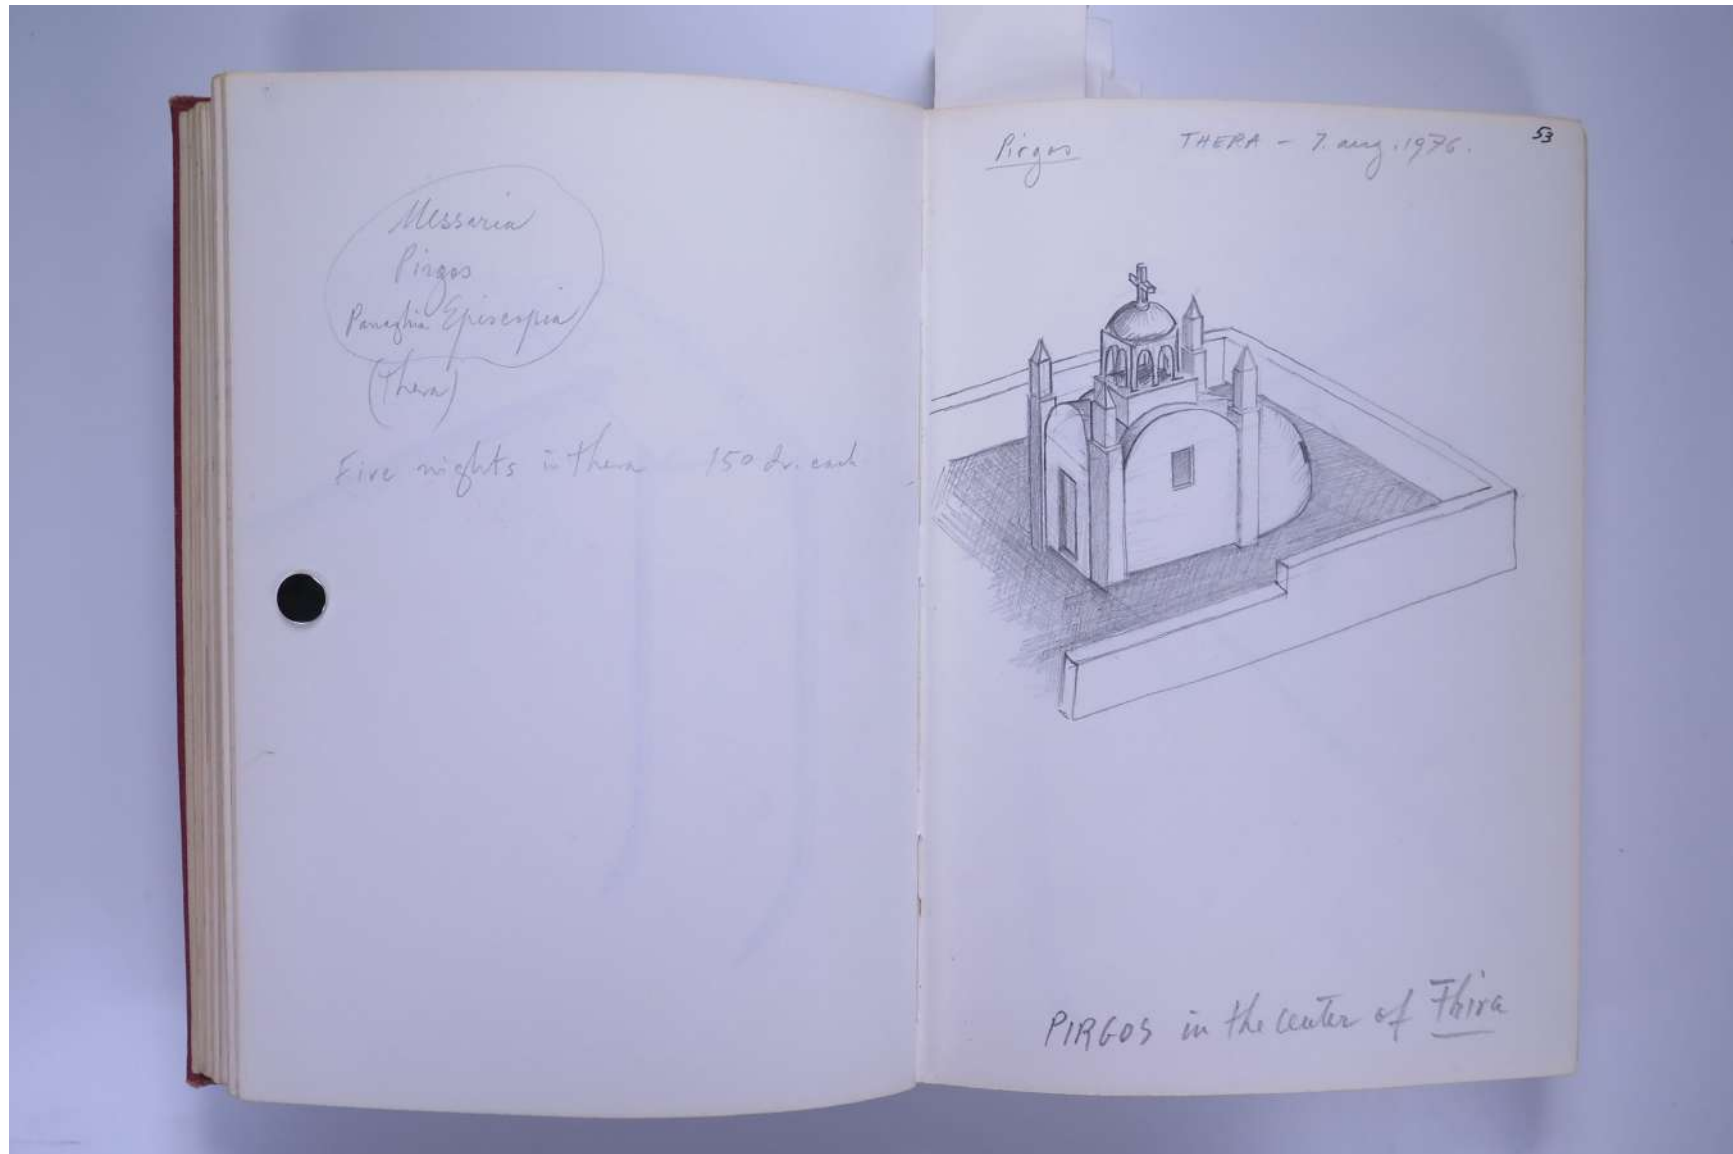 Messaria
Pirgos
Panaghia Episcopia
(Thera)
Five nights in Thera 150 dr. each
Pirgos THERA - 7. aug. 1976. 53
PIRGOS in the center of Thira